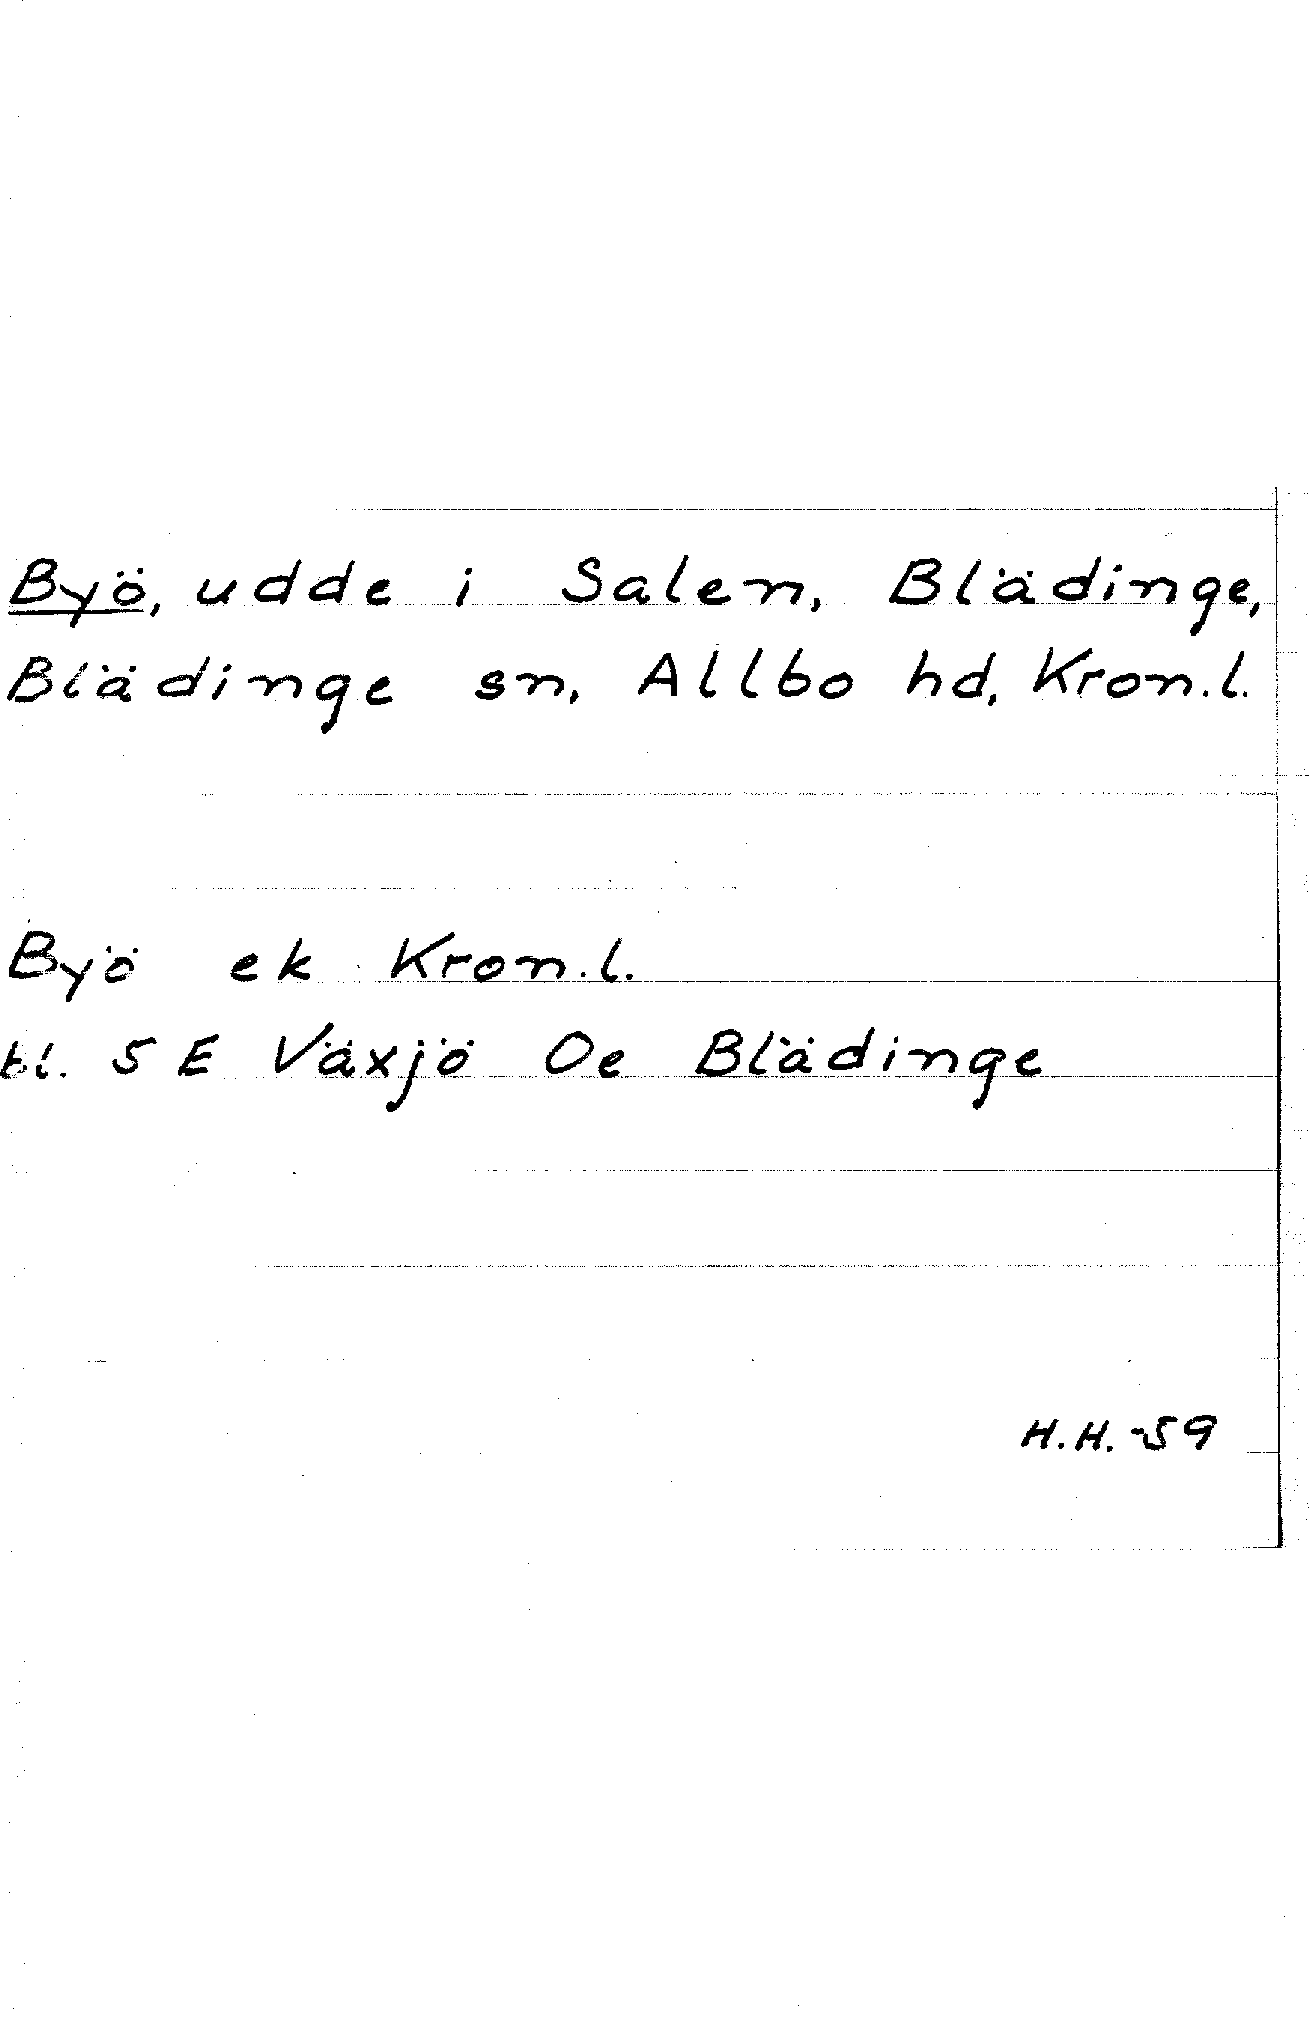 Byö, udde i Salen, Blädinge,
Blädinge sn, Allbo hd, Kron.l.
Byö ek Kron.l.
bl. 5 E Växjö Oe Blädinge
H.H.-59